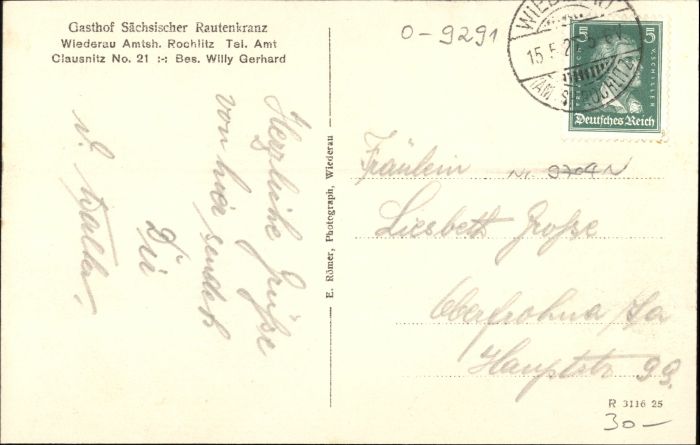 Gasthof Sächsischer Rautenkranz
Wiederau Amtsh. Rochlitz Tel. Amt
Clausnitz No. 21 :-: Bes. Willy Gerhard
0-9291
WIEDERAU
15.5.2
(AMTSH. ROCHLITZ)
5 5
FRIEDRICH V. SCHILLER
Deutsches Reich
Herzliche Grüße
von hier sendet
Dir
Walter.
E. Römer, Photograph, Wiederau
Fräulein
Liesbeth Große
Oberfrohna /Sa
Hauptstr 99.
R 3116 25
30-